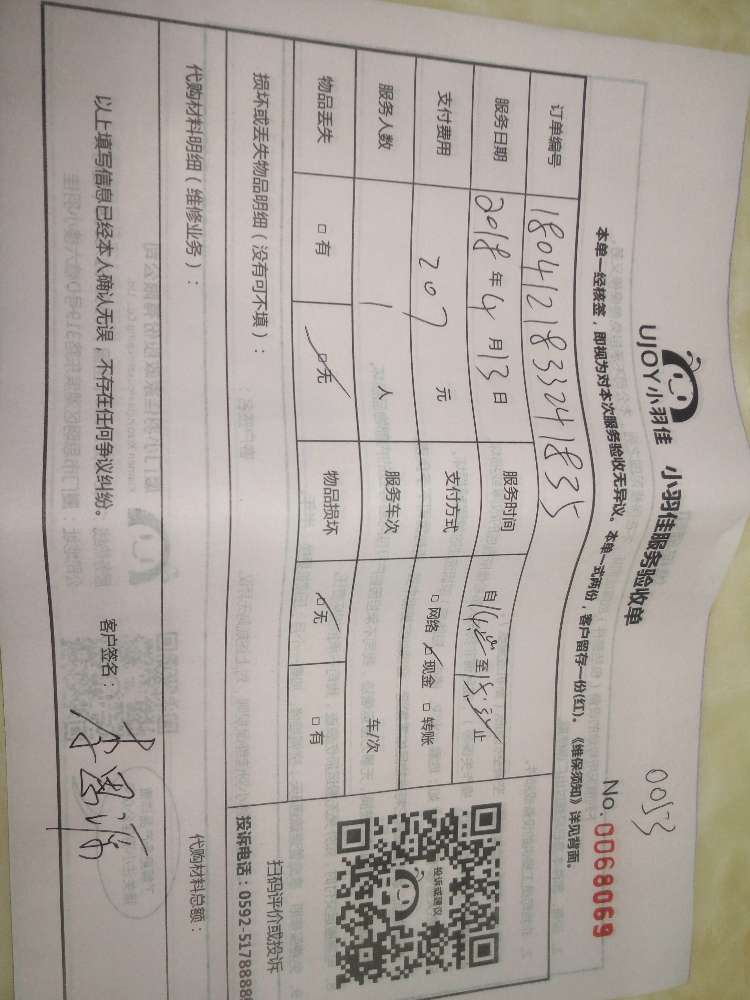 UJOY小羽佳 小羽佳服务验收单
0053
No.0068069
本单一经核签，即视为对本次服务验收无异议。本单一式两份，客户留存一份(红)。《维保须知》详见背面。
订单编号 1804121833241835
服务日期 2018年4月13日 服务时间 自 至 止
支付费用 207 元 支付方式 □网络 ☑现金 □转账
服务人数 1 人 服务车次 车/次
物品丢失 □有 ☑无 物品损坏 ☑无 □有
损坏或丢失物品明细（没有可不填）：
投诉或建议
扫码评价或投诉
投诉电话：0592-5178888
代购材料明细（维修业务）： 代购材料总额：
以上填写信息已经本人确认无误，不存在任何争议纠纷。 客户签名：